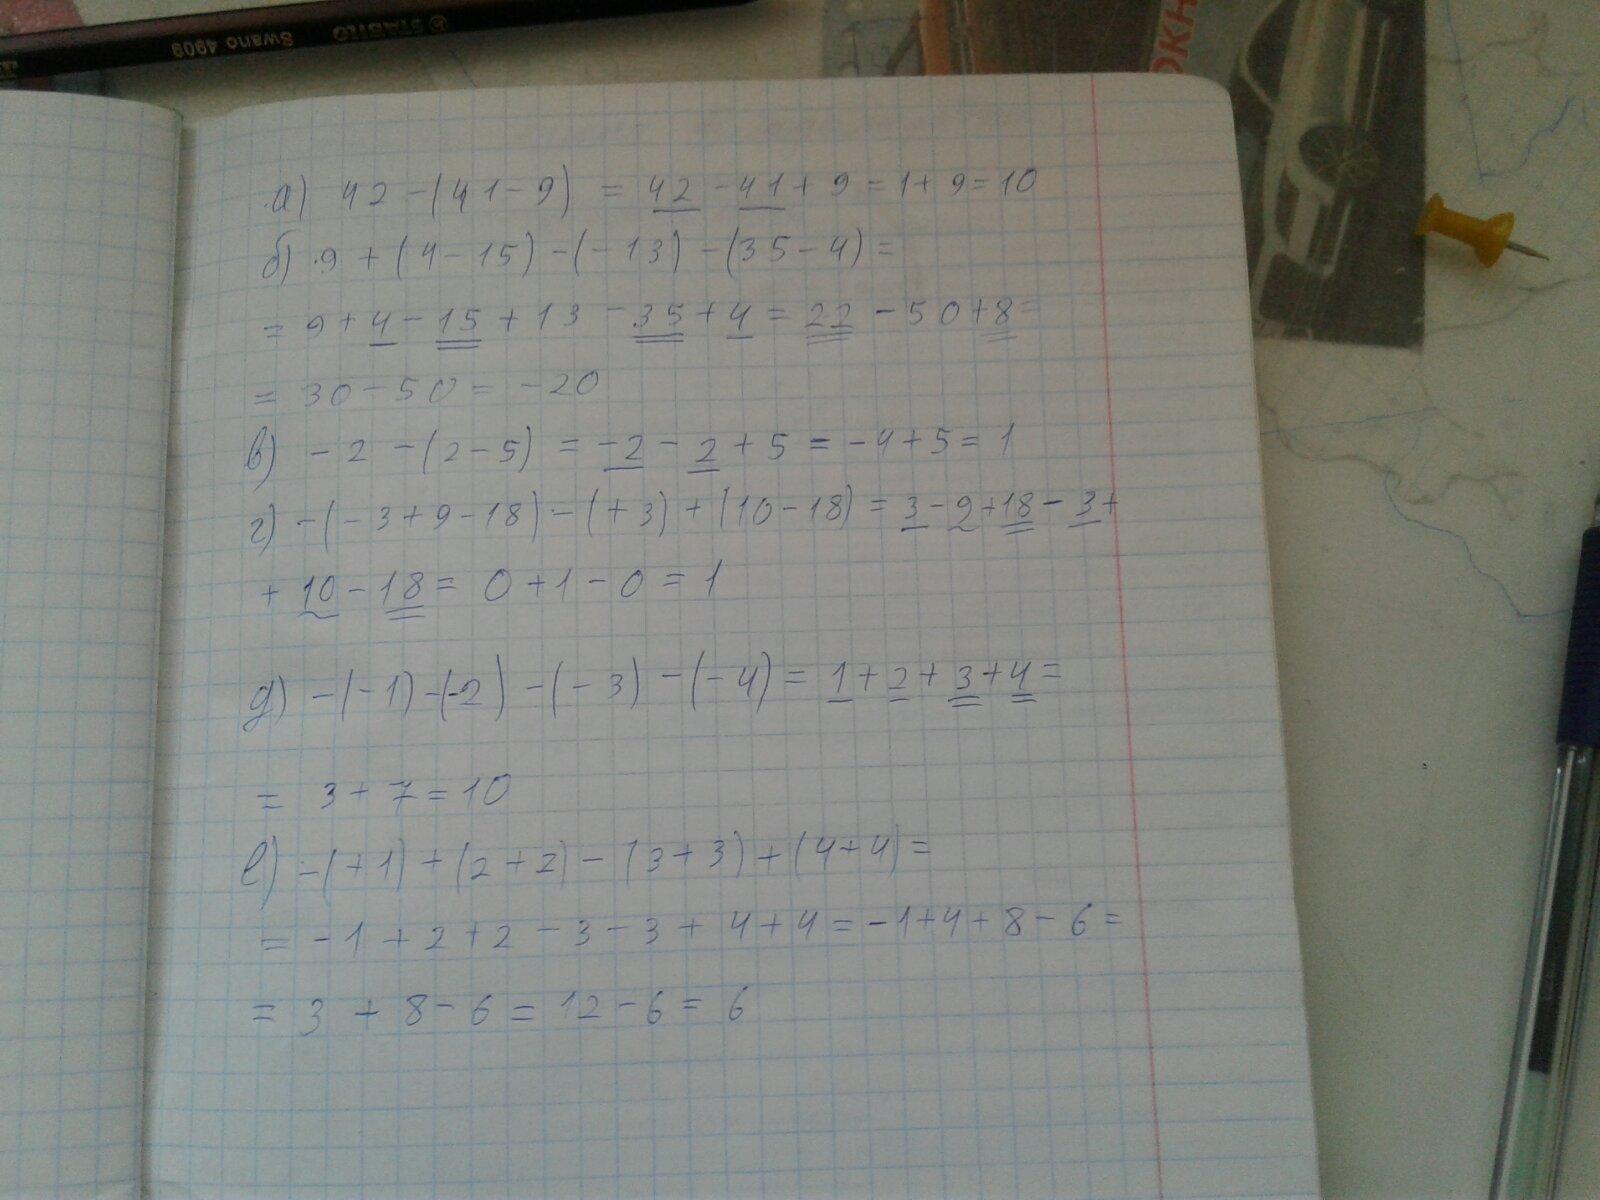 STABILO Swano 4909
ОКН
а) 42 - (41 - 9) = 42 - 41 + 9 = 1 + 9 = 10
б) 9 + (4 - 15) - (-13) - (35 - 4) =
= 9 + 4 - 15 + 13 - 35 + 4 = 22 - 50 + 8 =
= 30 - 50 = -20
в) -2 - (2 - 5) = -2 - 2 + 5 = -4 + 5 = 1
г) -(-3 + 9 - 18) - (+3) + (10 - 18) = 3 - 9 + 18 - 3 +
+ 10 - 18 = 0 + 1 - 0 = 1
д) -(-1) - (-2) - (-3) - (-4) = 1 + 2 + 3 + 4 =
= 3 + 7 = 10
е) -(+1) + (2 + 2) - (3 + 3) + (4 + 4) =
= -1 + 2 + 2 - 3 - 3 + 4 + 4 = -1 + 4 + 8 - 6 =
= 3 + 8 - 6 = 12 - 6 = 6